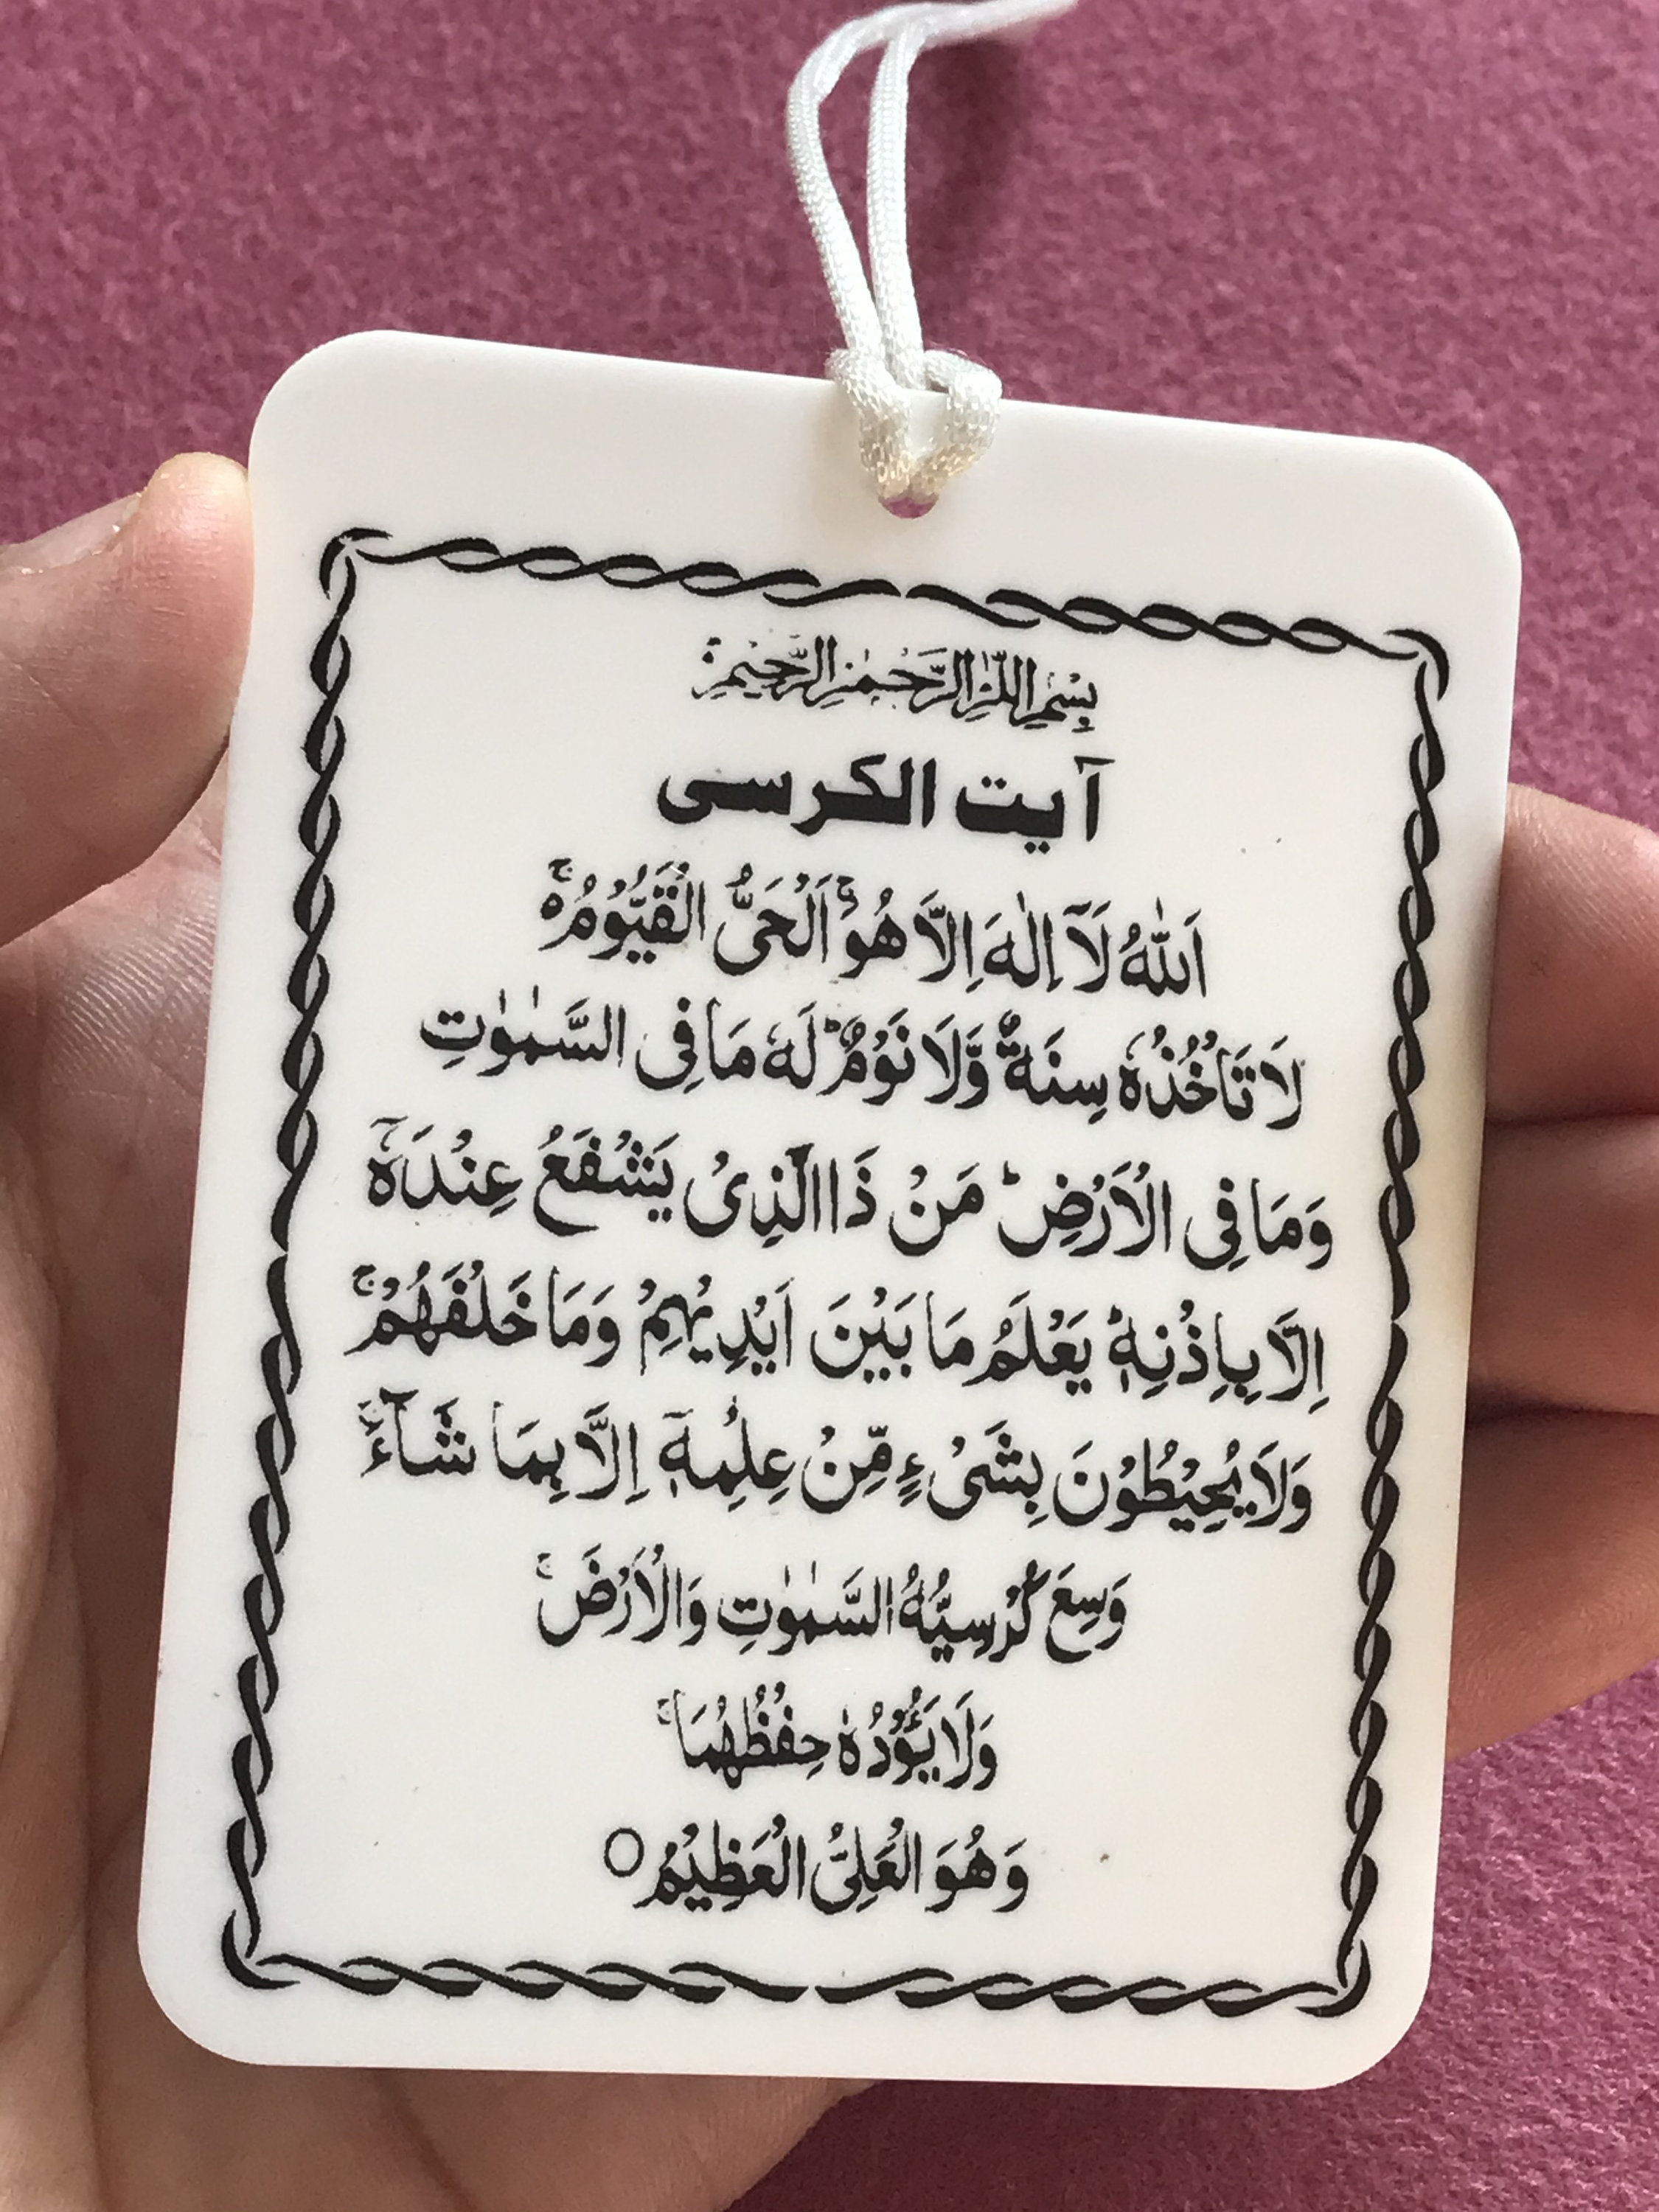 بِسْمِ اللّٰهِ الرَّحْمٰنِ الرَّحِيْمِ
آیت الکرسی
اَللّٰهُ لَآ اِلٰهَ اِلَّا هُوَ ۚ اَلْحَیُّ الْقَيُّوْمُ ۚ
لَا تَاْخُذُهٗ سِنَةٌ وَّلَا نَوْمٌ ؕ لَهٗ مَا فِی السَّمٰوٰتِ
وَمَا فِی الْاَرْضِ ؕ مَنْ ذَا الَّذِیْ يَشْفَعُ عِنْدَهٗٓ
اِلَّا بِاِذْنِهٖ ؕ يَعْلَمُ مَا بَيْنَ اَيْدِيْهِمْ وَمَا خَلْفَهُمْ ۚ
وَلَا يُحِيْطُوْنَ بِشَیْءٍ مِّنْ عِلْمِهٖٓ اِلَّا بِمَا شَآءَ ۚ
وَسِعَ كُرْسِيُّهُ السَّمٰوٰتِ وَالْاَرْضَ ۚ
وَلَا يَئُوْدُهٗ حِفْظُهُمَا ۚ
وَهُوَ الْعَلِیُّ الْعَظِيْمُ ○